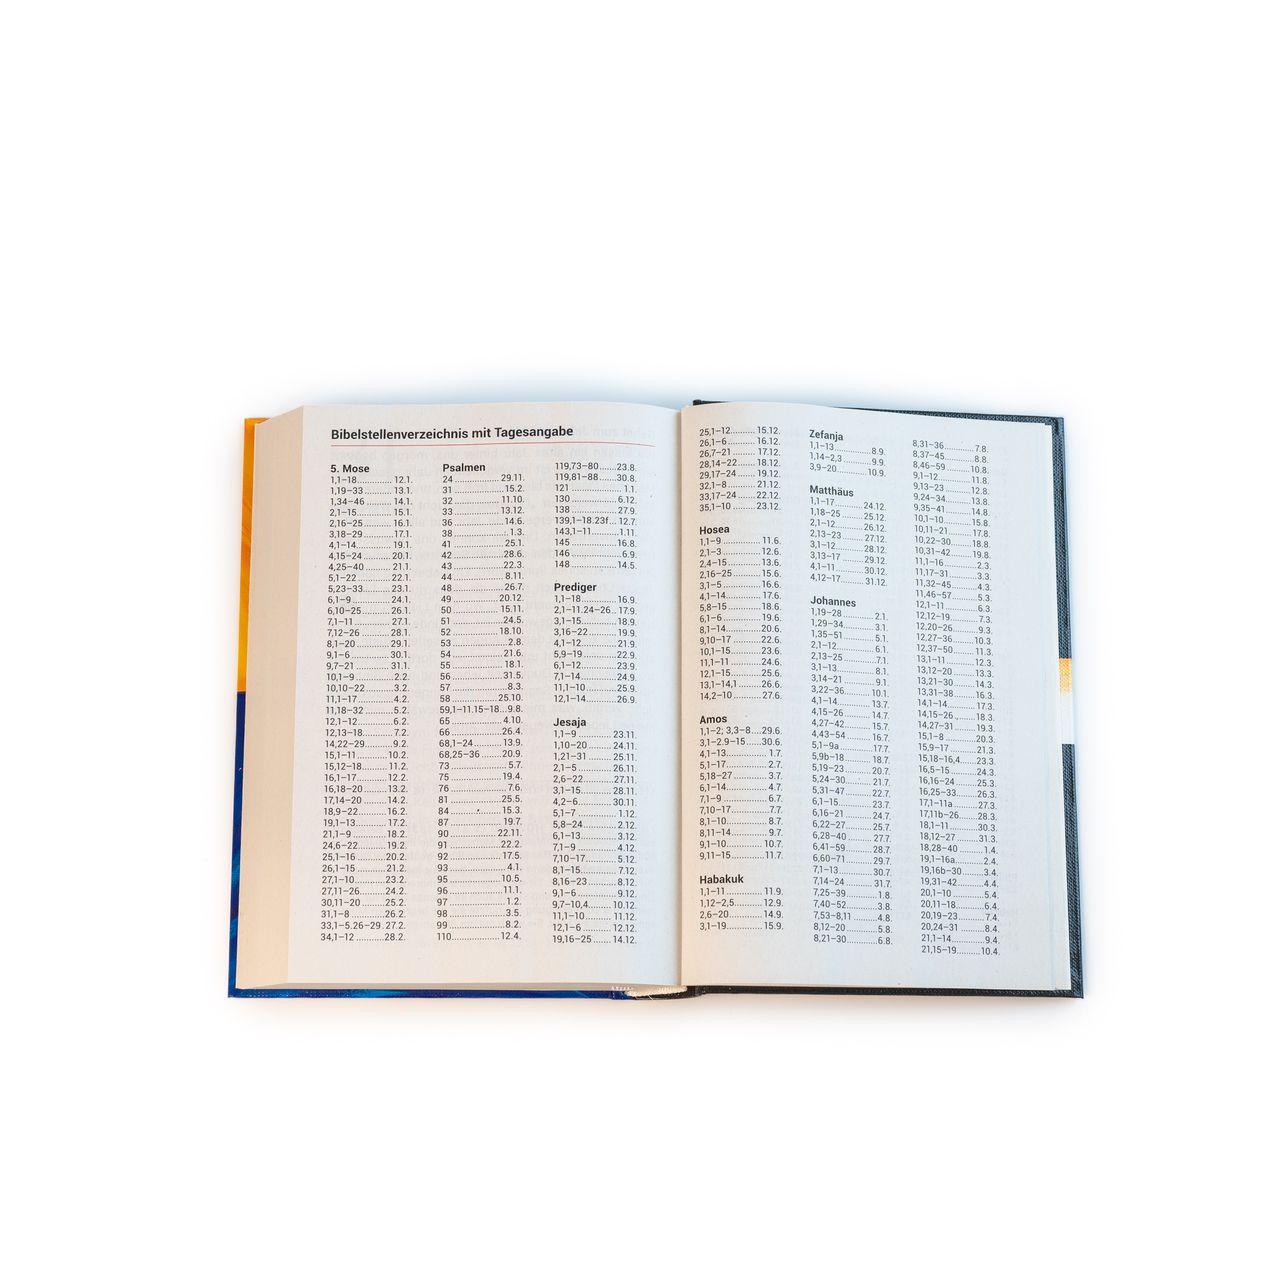 Bibelstellenverzeichnis mit Tagesangabe
5. Mose
1,1–18 12.1.
1,19–33 13.1.
1,34–46 14.1.
2,1–15 15.1.
2,16–25 16.1.
3,18–29 17.1.
4,1–14 19.1.
4,15–24 20.1.
4,25–40 21.1.
5,1–22 22.1.
5,23–33 23.1.
6,1–9 24.1.
6,10–25 26.1.
7,1–11 27.1.
7,12–26 28.1.
8,1–20 29.1.
9,1–6 30.1.
9,7–21 31.1.
10,1–9 2.2.
10,10–22 3.2.
11,1–17 4.2.
11,18–32 5.2.
12,1–12 6.2.
12,13–18 7.2.
14,22–29 9.2.
15,1–11 10.2.
15,12–18 11.2.
16,1–17 12.2.
16,18–20 13.2.
17,14–20 14.2.
18,9–22 16.2.
19,1–13 17.2.
21,1–9 18.2.
24,6–22 19.2.
25,1–16 20.2.
26,1–15 21.2.
27,1–10 23.2.
27,11–26 24.2.
30,11–20 25.2.
31,1–8 26.2.
33,1–5.26–29 27.2.
34,1–12 28.2.
Psalmen
24 29.11.
31 15.2.
32 11.10.
33 13.12.
36 14.6.
38 1.3.
41 25.1.
42 28.6.
43 22.3.
44 8.11.
48 26.7.
49 20.12.
50 15.11.
51 24.5.
52 18.10.
53 2.8.
54 21.6.
55 18.1.
56 31.5.
57 8.3.
58 25.10.
59,1–11.15–18 9.8.
65 4.10.
66 26.4.
68,1–24 13.9.
68,25–36 20.9.
73 5.7.
75 19.4.
76 7.6.
81 25.5.
84 15.3.
87 19.7.
90 22.11.
91 22.2.
92 17.5.
93 4.1.
95 10.5.
96 11.1.
97 1.2.
98 3.5.
99 8.2.
110 12.4.
119,73–80 23.8.
119,81–88 30.8.
121 1.1.
130 6.12.
138 27.9.
139,1–18.23f 12.7.
143,1–11 1.11.
145 16.8.
146 6.9.
148 14.5.
Prediger
1,1–18 16.9.
2,1–11.24–26 17.9.
3,1–15 18.9.
3,16–22 19.9.
4,1–12 21.9.
5,9–19 22.9.
6,1–12 23.9.
7,1–14 24.9.
11,1–10 25.9.
12,1–14 26.9.
Jesaja
1,1–9 23.11.
1,10–20 24.11.
1,21–31 25.11.
2,1–5 26.11.
2,6–22 27.11.
3,1–15 28.11.
4,2–6 30.11.
5,1–7 1.12.
5,8–24 2.12.
6,1–13 3.12.
7,1–9 4.12.
7,10–17 5.12.
8,1–15 7.12.
8,16–23 8.12.
9,1–6 9.12.
9,7–10,4 10.12.
11,1–10 11.12.
12,1–6 12.12.
19,16–25 14.12.
25,1–12 15.12.
26,1–6 16.12.
26,7–21 17.12.
28,14–22 18.12.
29,17–24 19.12.
32,1–8 21.12.
33,17–24 22.12.
35,1–10 23.12.
Hosea
1,1–9 11.6.
2,1–3 12.6.
2,4–15 13.6.
2,16–25 15.6.
3,1–5 16.6.
4,1–14 17.6.
5,8–15 18.6.
6,1–6 19.6.
8,1–14 20.6.
9,10–17 22.6.
10,1–15 23.6.
11,1–11 24.6.
12,1–15 25.6.
13,1–14,1 26.6.
14,2–10 27.6.
Amos
1,1–2; 3,3–8 29.6.
3,1–2.9–15 30.6.
4,1–13 1.7.
5,1–17 2.7.
5,18–27 3.7.
6,1–14 4.7.
7,1–9 6.7.
7,10–17 7.7.
8,1–10 8.7.
8,11–14 9.7.
9,1–10 10.7.
9,11–15 11.7.
Habakuk
1,1–11 11.9.
1,12–2,5 12.9.
2,6–20 14.9.
3,1–19 15.9.
Zefanja
1,1–13 8.9.
1,14–2,3 9.9.
3,9–20 10.9.
Matthäus
1,1–17 24.12.
1,18–25 25.12.
2,1–12 26.12.
2,13–23 27.12.
3,1–12 28.12.
3,13–17 29.12.
4,1–11 30.12.
4,12–17 31.12.
Johannes
1,19–28 2.1.
1,29–34 3.1.
1,35–51 5.1.
2,1–12 6.1.
2,13–25 7.1.
3,1–13 8.1.
3,14–21 9.1.
3,22–36 10.1.
4,1–14 13.7.
4,15–26 14.7.
4,27–42 15.7.
4,43–54 16.7.
5,1–9a 17.7.
5,9b–18 18.7.
5,19–23 20.7.
5,24–30 21.7.
5,31–47 22.7.
6,1–15 23.7.
6,16–21 24.7.
6,22–27 25.7.
6,28–40 27.7.
6,41–59 28.7.
6,60–71 29.7.
7,1–13 30.7.
7,14–24 31.7.
7,25–39 1.8.
7,40–52 3.8.
7,53–8,11 4.8.
8,12–20 5.8.
8,21–30 6.8.
8,31–36 7.8.
8,37–45 8.8.
8,46–59 10.8.
9,1–12 11.8.
9,13–23 12.8.
9,24–34 13.8.
9,35–41 14.8.
10,1–10 15.8.
10,11–21 17.8.
10,22–30 18.8.
10,31–42 19.8.
11,1–16 2.3.
11,17–31 3.3.
11,32–45 4.3.
11,46–57 5.3.
12,1–11 6.3.
12,12–19 7.3.
12,20–26 9.3.
12,27–36 10.3.
12,37–50 11.3.
13,1–11 12.3.
13,12–20 13.3.
13,21–30 14.3.
13,31–38 16.3.
14,1–14 17.3.
14,15–26 18.3.
14,27–31 19.3.
15,1–8 20.3.
15,9–17 21.3.
15,18–16,4 23.3.
16,5–15 24.3.
16,16–24 25.3.
16,25–33 26.3.
17,1–11a 27.3.
17,11b–26 28.3.
18,1–11 30.3.
18,12–27 31.3.
18,28–40 1.4.
19,1–16a 2.4.
19,16b–30 3.4.
19,31–42 4.4.
20,1–10 5.4.
20,11–18 6.4.
20,19–23 7.4.
20,24–31 8.4.
21,1–14 9.4.
21,15–19 10.4.